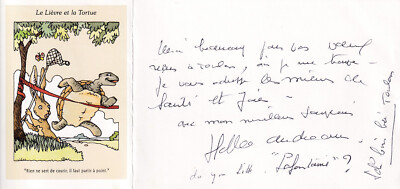 Le Lièvre et la Tortue
"Rien ne sert de courir, il faut partir à point."
Merci beaucoup pour vos vœux
reçus à Toulon, où je me trouve
Je vous adresse les miens de
Santé et Joies
avec mon meilleur souvenir
do you like "Lafontaine"?